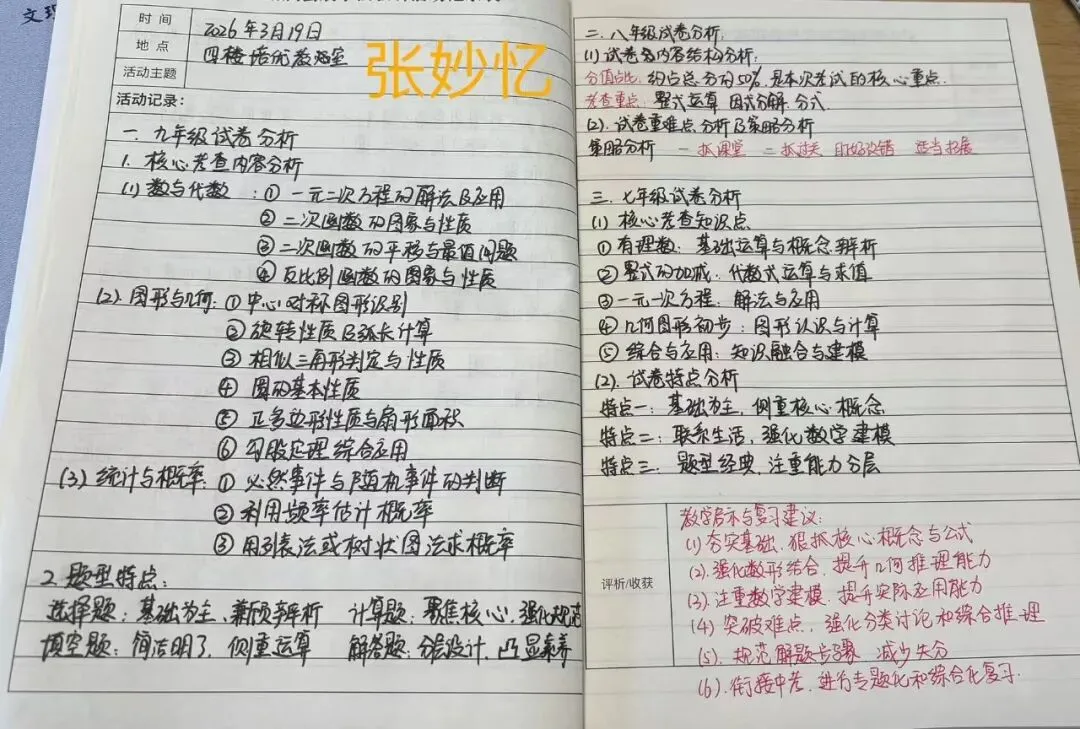 文理
时 间
2026年3月19日
地 点
四楼培优教室
张妙忆
活动主题
活动记录:
一. 九年级试卷分析
1. 核心考查内容分析
(1) 数与代数 : ① 一元二次方程的解法及应用
② 二次函数的图象与性质
③ 二次函数的平移与最值问题
④ 反比例函数的图象与性质
(2). 图形与几何: ① 中心对称图形识别
② 旋转性质及弧长计算
③ 相似三角形判定与性质
④ 圆的基本性质
⑤ 正多边形性质与扇形面积
⑥ 勾股定理综合应用
(3) 统计与概率: ① 必然事件与随机事件的判断
② 利用频率估计概率
③ 用列表法或树状图法求概率
2. 题型特点:
选择题: 基础为主、兼顾辨析 计算题: 聚焦核心, 强化规范
填空题: 简洁明了, 侧重运算 解答题: 分层设计, 凸显素养
二. 八年级试卷分析:
(1) 试卷各内容结构分析:
分值占比: 约占总分的50%, 是本次考试的核心重点.
考查重点: 整式运算 因式分解 分式
(2). 试卷重难点分析及策略分析
策略分析 一抓课堂 二抓过关 适当拓展
三. 七年级试卷分析
(1) 核心考查知识点
① 有理数: 基础运算与概念辨析
② 整式的加减: 代数式运算与求值
③ 一元一次方程: 解法与应用
④ 几何图形初步: 图形认识与计算
⑤ 综合与应用: 知识融合与建模
(2). 试卷特点分析
特点一: 基础为主, 侧重核心概念
特点二: 联系生活, 强化数学建模
特点三: 题型经典, 注重能力分层
评析/收获
教学启示与复习建议:
(1) 夯实基础, 狠抓核心概念与公式
(2). 强化数形结合, 提升几何推理能力
(3). 注重数学建模, 提升实际应用能力
(4) 突破难点, 强化分类讨论和综合推理
(5). 规范解题步骤 减少失分
(6). 衔接中考, 进行专题化和综合化复习.